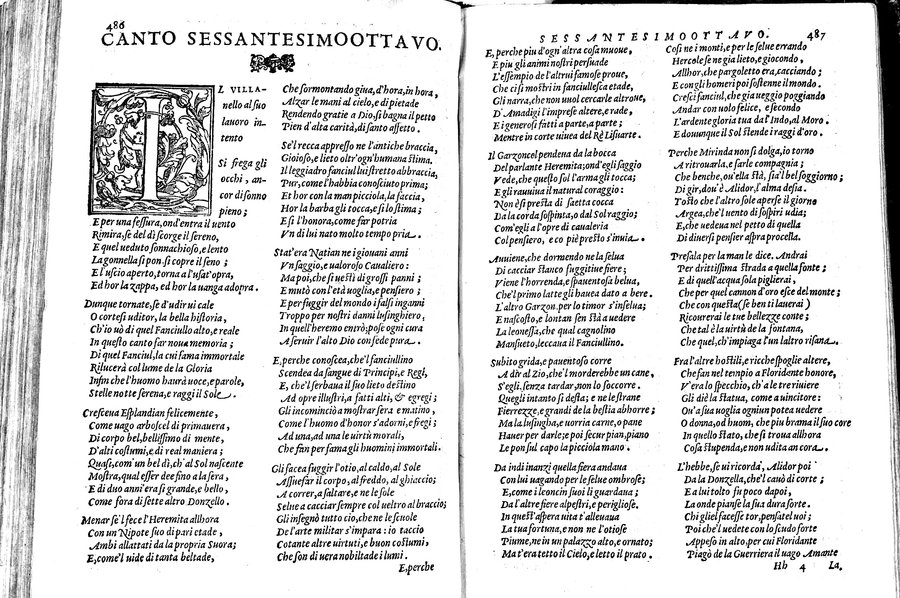 486
CANTO SESSANTESIMOOTTAVO.
IL VILLA-
nello al suo
lauoro in-
tento
Si frega gli
occhi, an-
cor di sonno
pieno;
E per una fessura, ond'entra il uento
Rimira, se del dì scorge il sereno,
E quel ueduto sonnachioso, e lento
La gonnella si pon, si copre il seno;
E l'uscio aperto, torna a l'usat'opra,
Ed hor la zappa, ed hor la uanga adopra.
Dunque tornate, se d'udir ui cale
O cortesi uditor, la bella historia,
Ch'io uò di quel Fanciullo alto, e reale
In questo canto far noua memoria;
Di quel Fanciul, la cui fama immortale
Rilucerà col lume de la Gloria
Infin che l'huomo haurà uoce, e parole,
Stelle notte serena, e raggi il Sole.
Cresceua Esplandian felicemente,
Come uago arboscel di primauera,
Di corpo bel, bellissimo di mente,
D'alti costumi, e di real maniera;
Quasi, com'un bel dì, ch'al Sol nascente
Mostra, qual esser dee fino a la sera,
E di duo anni era sì grande, e bello,
Come fora di sette altro Donzello.
Menar se'l fece l'Heremita allhora
Con un Nipote suo di pari etade,
Ambi allattati da la propria Suora;
E, come'l uide di tanta beltade,
Che sormontando giua, d'hora, in hora,
Alzar le mani al cielo, e di pietade
Rendendo gratie a Dio, si bagna il petto
Pien d'alta carità, di santo affetto.
Se'l reca appresso ne l'antiche braccia,
Gioioso, e lieto oltr'ogn'humana stima.
Il leggiadro fanciul lui stretto abbraccia,
Pur, come l'habbia conosciuto prima;
Et hor con la man picciola, la faccia,
Hor la barba gli tocca, e si lo stima;
E sì l'honora, come far potria
Vn di lui nato molto tempo pria.
Stat'era Natian ne i giouani anni
Vn saggio, e ualoroso Caualiero:
Ma poi, che si uestì di grossi panni;
E mutò con l'età uoglia, e pensiero;
E per fuggir del mondo i falsi inganni
Troppo per nostri danni lusinghiero,
In quell'heremo entrò; pose ogni cura
A seruir l'alto Dio con fede pura.
E, perche conoscea, che'l fanciullino
Scendea da sangue di Principi, e Regi,
E, che'l serbaua il suo lieto destino
Ad opre illustri, a fatti alti, & egregi;
Gli incominciò a mostrar sera e matino,
Come l'huomo d'honor s'adorni, e fregi;
Ad una, ad una le uirtù morali,
Che fan per fama gli huomini immortali.
Gli facea fuggir l'otio, al caldo, al Sole
Assuefar il corpo, al freddo, al ghiaccio;
A correr, a saltare, e ne le sole
Selue a cacciar sempre col ueltro al braccio;
Gli insegnò tutto ciò, che ne le scuole
De l'arte militar s'impara: io taccio
Cotante altre uirtuti, e buon costumi,
Che son di uera nobiltade i lumi.
E, perche
SESSANTESIMOOTTAVO.
487
E, perche piu d'ogn'altra cosa muoue,
E piu gli animi nostri persuade
L'essempio de l'altrui famose proue,
Che ci sì mostri in fanciullesca etade,
Gli narra, che non uuol cercarle altroue,
D'Amadigi l'imprese altere, e rade,
E i generosi fatti a parte, a parte;
Mentre in corte uiuea del Rè Lisuarte.
Il Garzoncel pendeua da la bocca
Del parlante Heremita; ond'egli saggio
Vede, che questo sol l'arma gli tocca;
E gli rauuiua il natural coraggio:
Non è sì presta di saetta cocca
Da la corda sospinta, o dal Sol raggio;
Com'egli a l'opre di caualeria
Col pensiero, e co piè presto s'inuia.
Auuiene, che dormendo ne la selua
Di cacciar stanco fuggitiue fiere;
Viene l'horrenda, e spauentosa belua,
Che'l primo latte gli hauea dato a bere.
L'altro Garzon, per lo timor s'inselua;
E nascosto, e lontan sen stà a uedere
La leonessa, che qual cagnolino
Mansueto, leccaua il Fanciullino.
Subito grida, e pauentoso corre
A dir al Zio, che'l morderebbe un cane,
S'egli, senza tardar, non lo soccorre.
Quegli intanto si desta; e ne le strane
Fierezze, e grandi de la bestia abborre;
Ma la lusinga, e uorria carne, o pane
Hauer per darle; e poi secur pian, piano
Le pon sul capo la picciola mano.
Da indi inanzi quella fiera andaua
Con lui uagando per le selue ombrose;
E, come i leoncin suoi li guardaua;
Da l'altre fiere alpestri, e perigliose.
In quest'aspera uita t'alleuaua
La tua fortuna, e non ne l'otiose
Piume, ne in un palazzo alto, e ornato;
Ma t'era tetto il Cielo, e letto il prato.
Così ne i monti, e per le selue errando
Hercole se ne gia lieto, e giocondo,
Allhor, che pargoletto era, cacciando;
E con gli homeri poi sostenne il mondo.
Cresci fanciul, che gia ueggio poggiando
Andar con uolo felice, e secondo
L'ardente gloria tua da l'Indo, al Moro.
E dounque il Sol stende i raggi d'oro.
Perche Mirinda non si dolga, io torno
A ritrouarla, e farle compagnia;
Che benche, ou'ella stà, sia'l bel soggiorno;
Di gir, dou'è Alidor, l'alma desia.
Tosto che l'altro sole aperse il giorno
Argea, che'l uento di sospiri udia;
E, che uedeua nel petto di quella
Di diuersi pensier aspra procella.
Presala per la man le dice. Andrai
Per drittissima strada a quella fonte;
E di quell'acqua sola piglierai,
Che per quel cannon d'oro esce del monte;
Che con questa (se ben ti lauerai)
Ricourerai le tue bellezze conte;
Che tal è la uirtà de la fontana,
Che quel, ch'impiaga l'un l'altro risana.
Fra l'altre hostili, e ricche spoglie altere,
Che fan nel tempio a Floridante honore,
V'era lo specchio, ch'a le tre riuiere
Gli diè la statua, come a uincitore:
Ou'a sua uoglia ogniun potea uedere
O donna, od huom, che piu brama il suo core
In quello stato, che si troua allhora
Cosa stupenda, e non udita ancora.
L'hebbe, se ui ricorda, Alidor poi
Da la Donzella, che'l cauò di corte;
E a lui tolto fu poco dapoi,
La onde pianse la sua dura sorte.
Chi gliel facesse tor, pensatel uoi;
Poi che'l uedete con lo scudo forte
Appeso in alto, per cui Floridante
Piagò de la Guerriera il uago Amante
Hh 4
La,